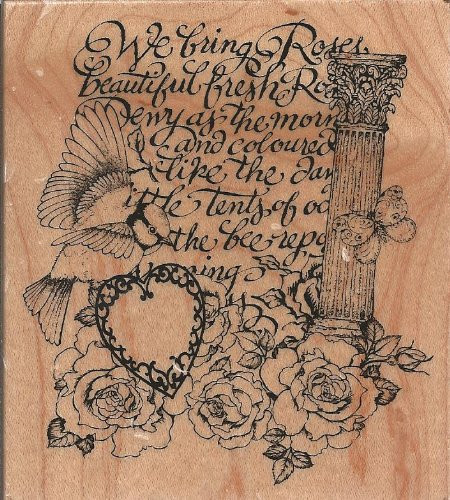 We bring Roses,
beautiful fresh Ro
Dewy as the morn
and coloured
like the daw
ttle tents of od
the bee repo
ning